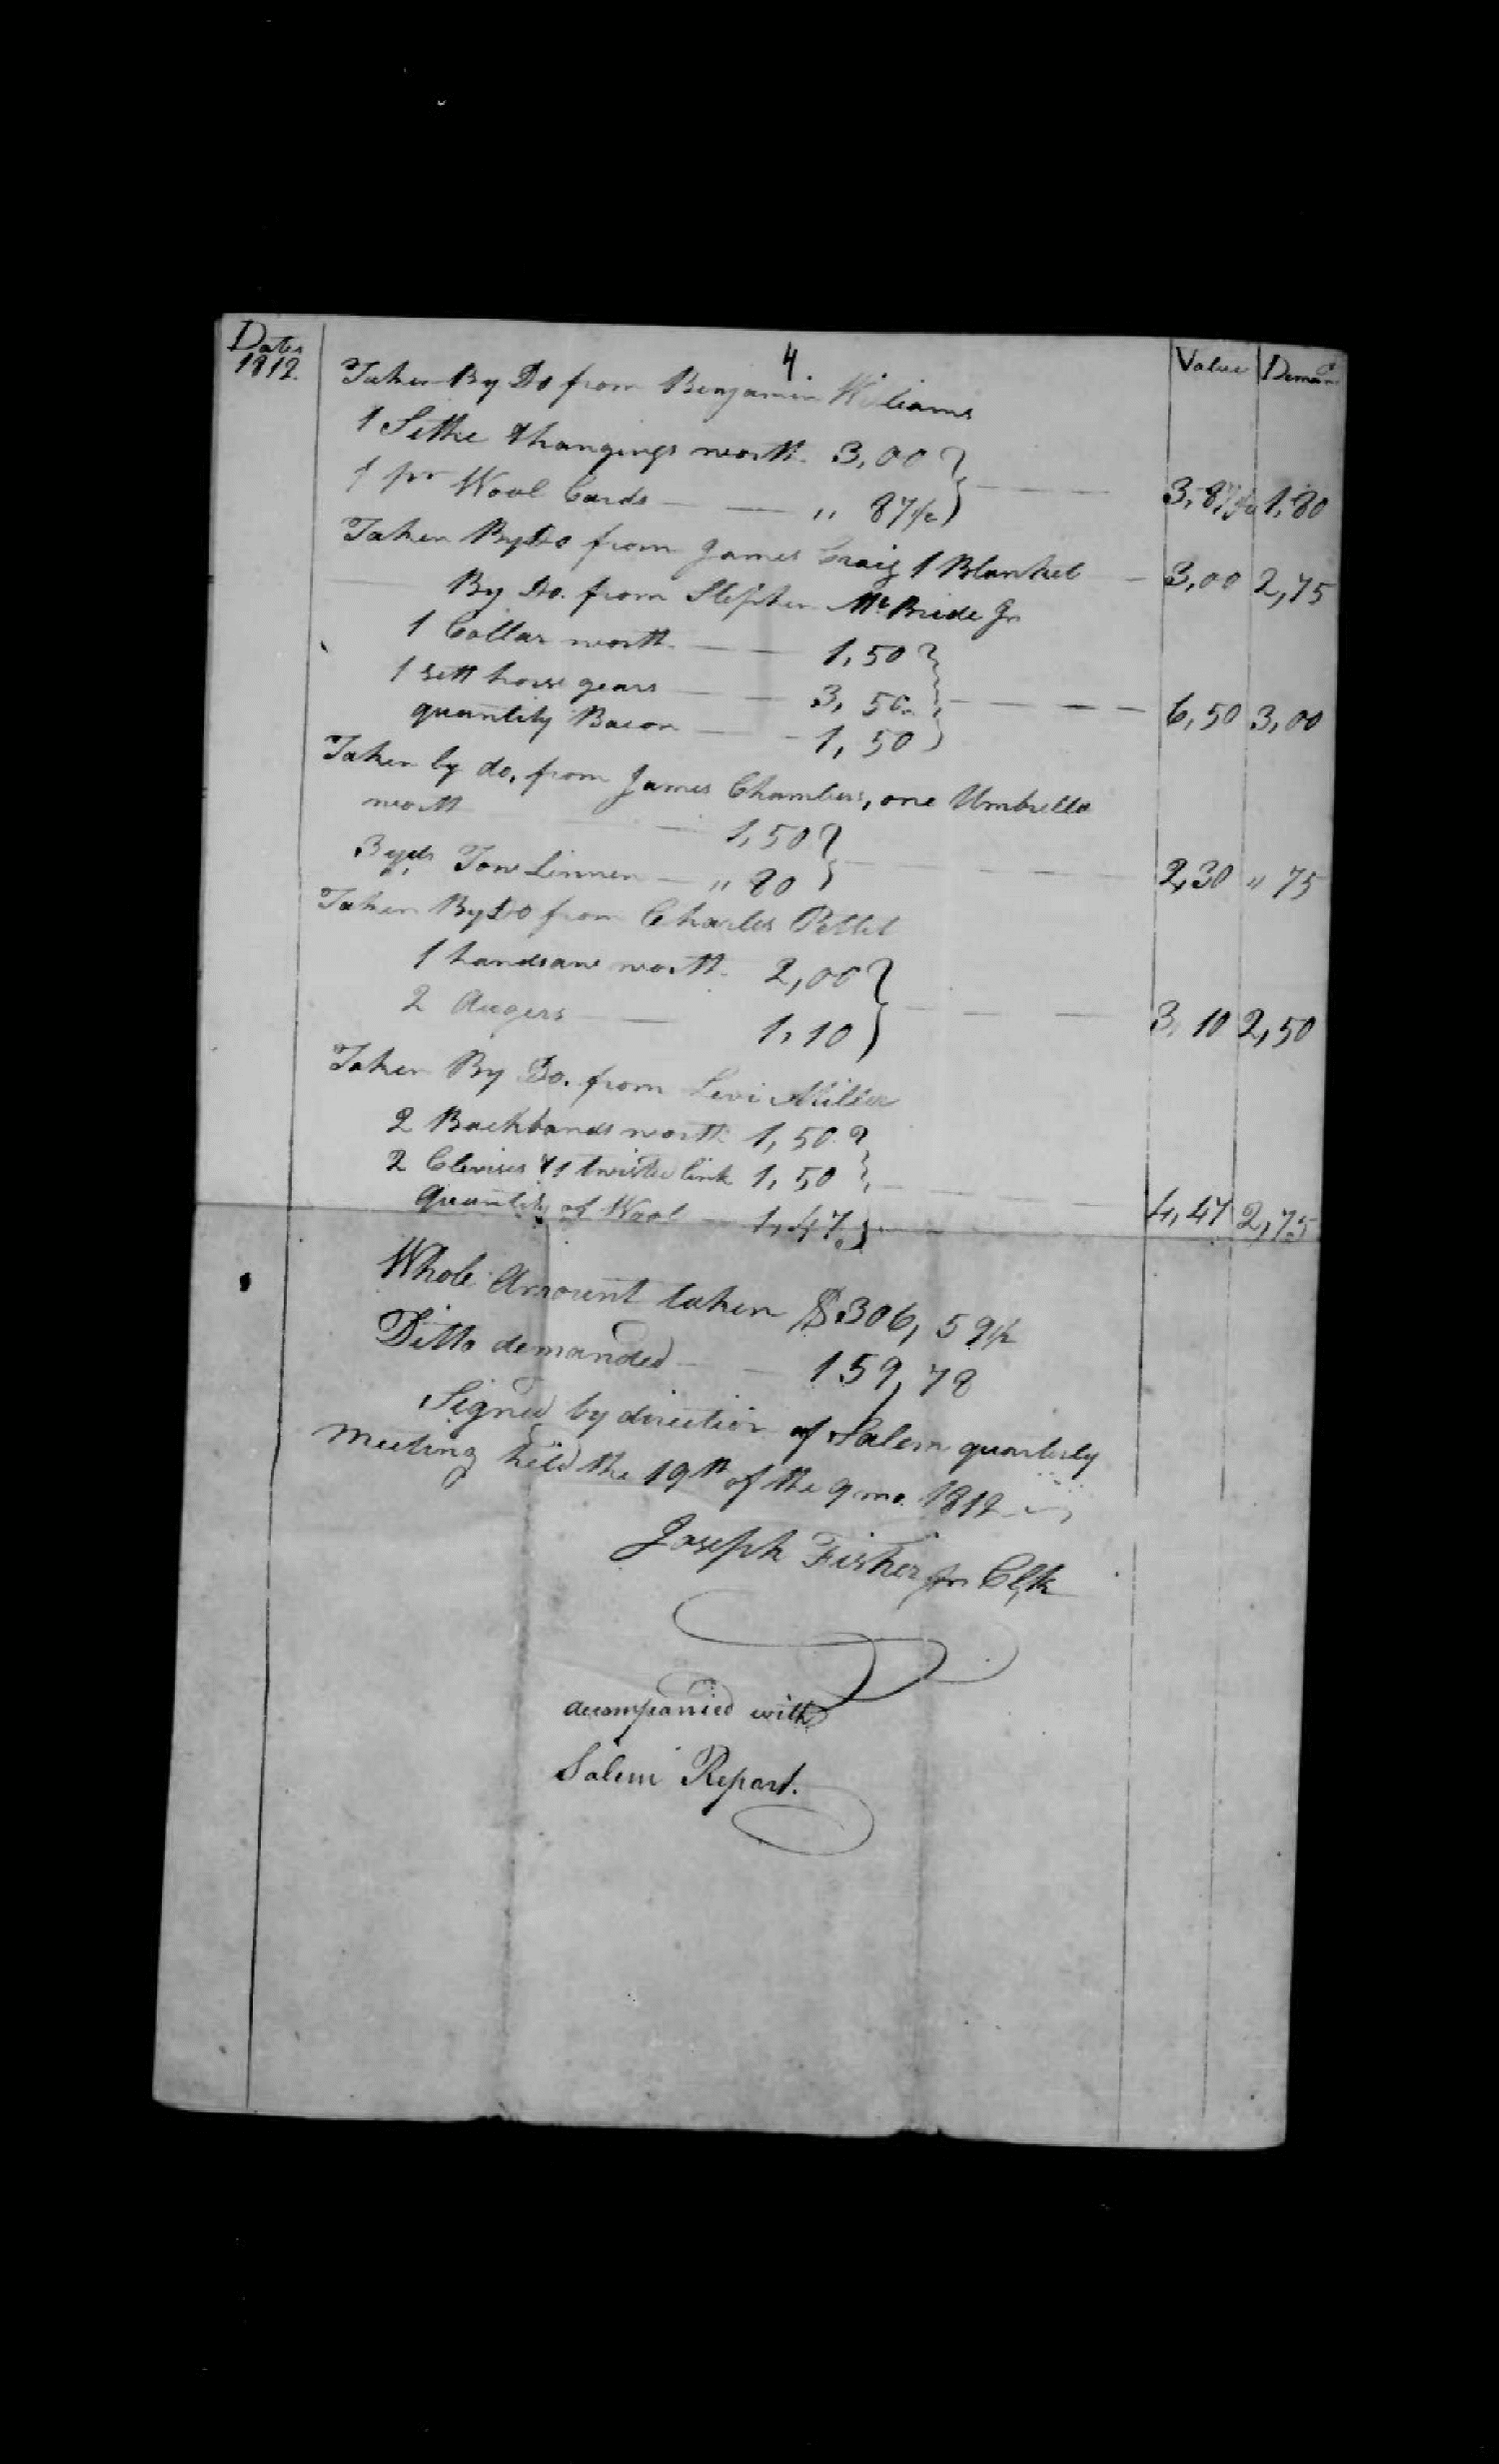 4
Dates Value Demand
1812.
Taken By Do from Benjamin Williams
1 Sithe & hangings worth 3,00
1 pr Wool Cards — — " 87½ — — 3,87½ 1,80
Taken By Do from James Craig 1 Blanket — 3,00 2,75
By Do. from Stephen McBride Jr
1 Collar worth — — 1,50
1 sett horse gears — — 3,50 — — — 6,50 3,00
quantity Bacon — — 1,50
Taken by do. from James Chambers, one Umbrella
worth — 1,50
3 yds Tow Linnen — " 80 — — 2,30 " 75
Taken By Do from Charles Pettit
1 handsaw worth 2,00
2 Augers — — 1,10 — — 3,10 2,50
Taken By Do. from Levi Miller
2 Backbands worth 1,50
2 Clevises & 1 twisted link 1,50
quantity of Wool — 1,47 — — 4,47 2,75
Whole Amount taken $306,59½
Ditto demanded — — 159,78
Signed by direction of Salem quarterly
meeting held the 19th of the 9 mo. 1812
Joseph Fisher Jr Clk
acompanied with
Salem Report.